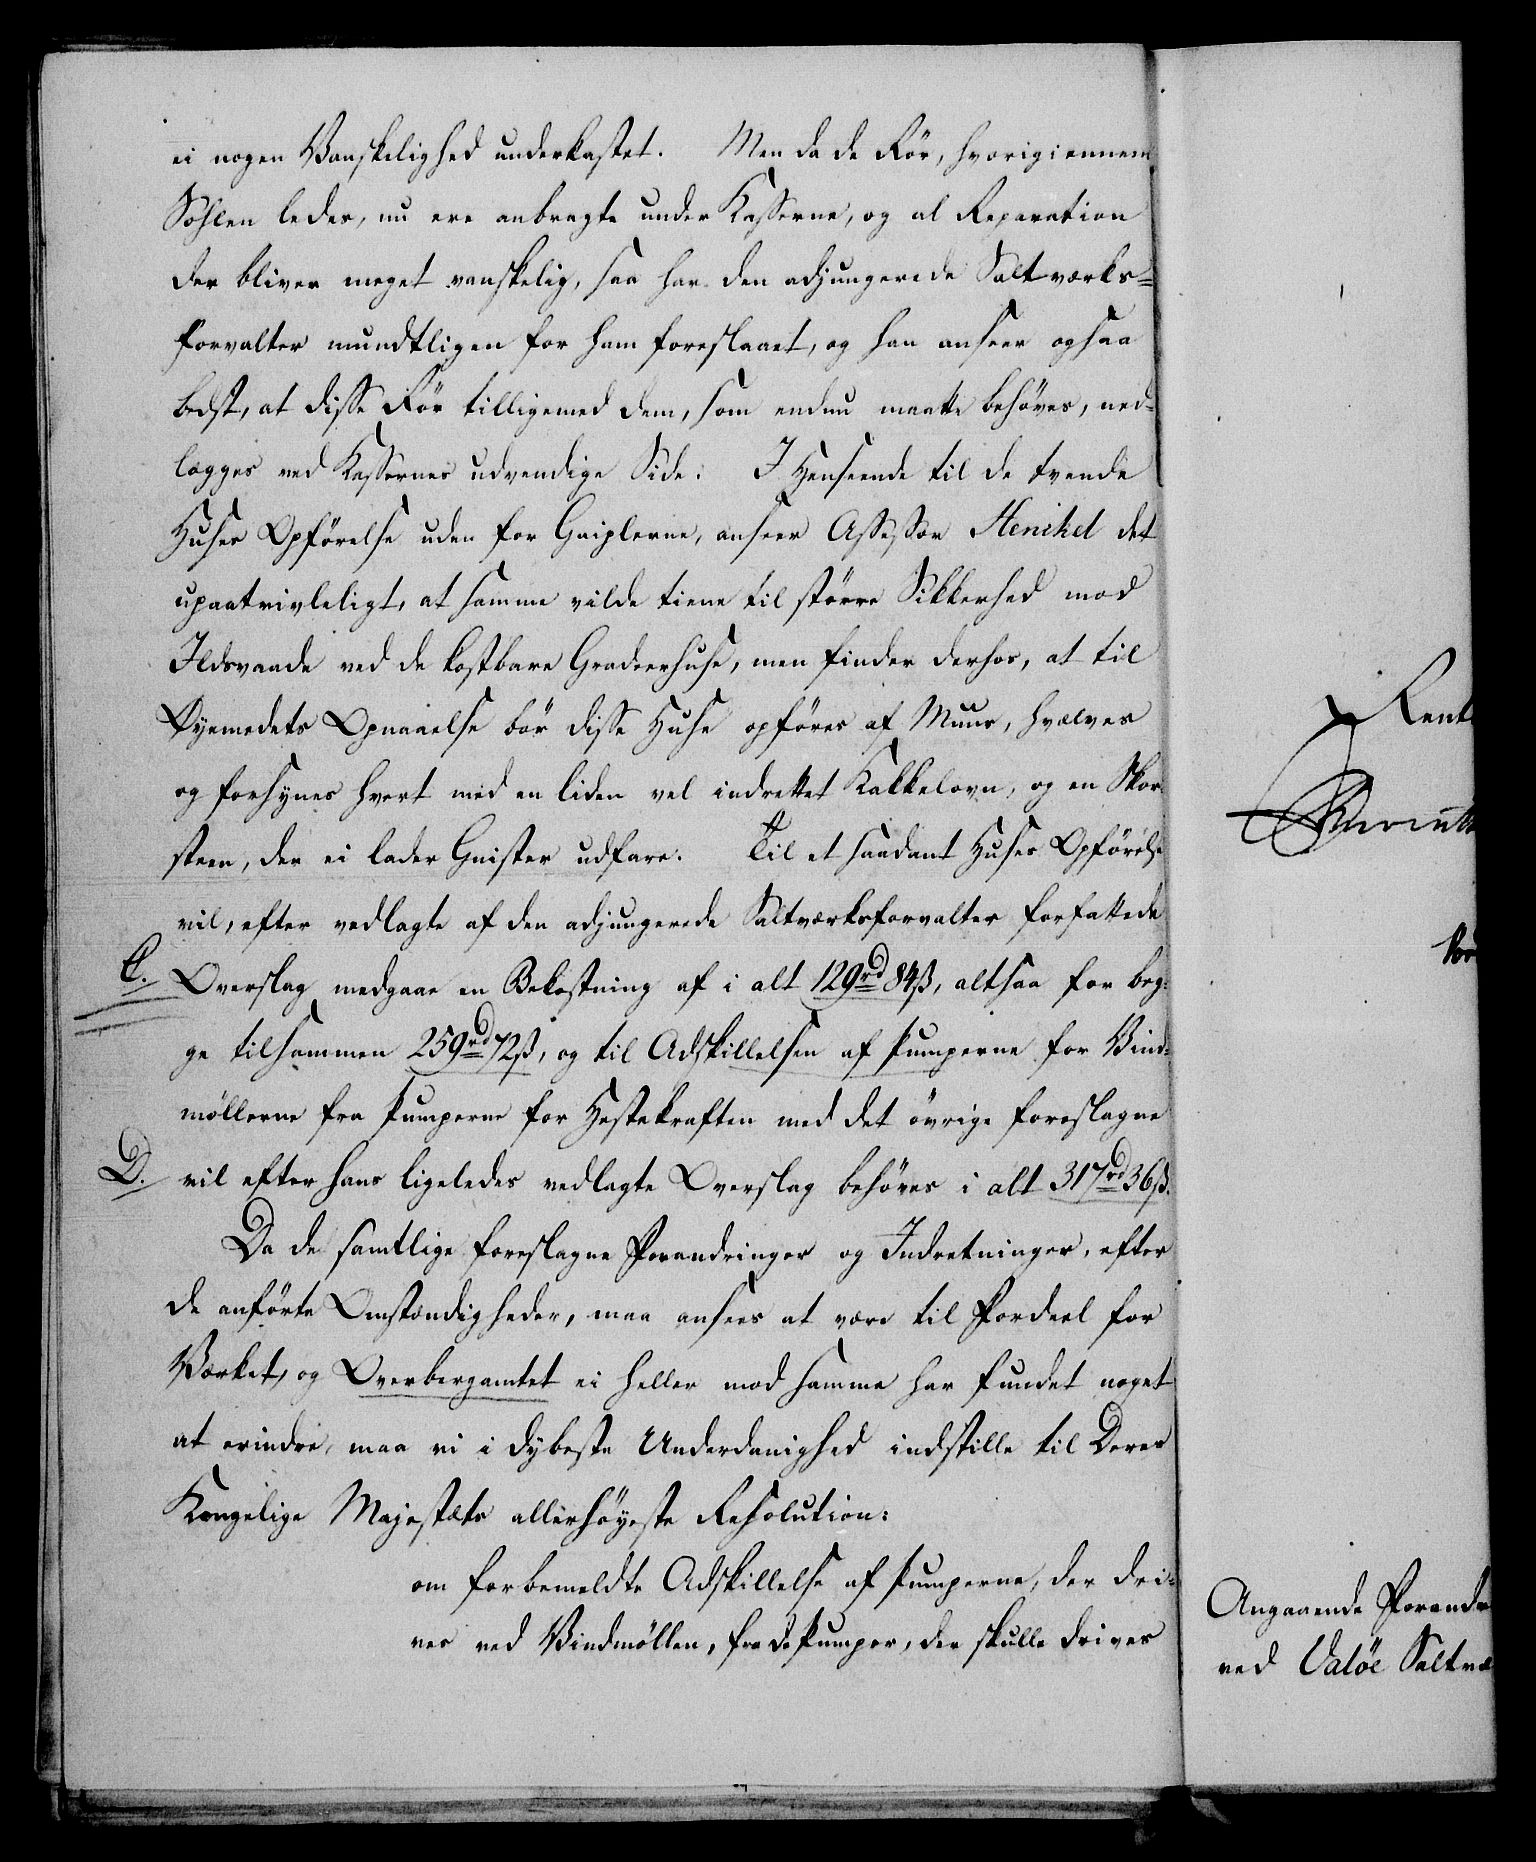 ei nogen Vanskelighed underkastet. Men da de Rör, hvorigiennem
Sohlen leder, nu ere anbragte under Kasserne, og al Reparation
der bliver meget vanskelig, saa har den adjungerede Saltværks-
forvalter mundtligen for ham foreslaaet, og han anseer ogsaa
bedst, at disse Rör tilligemed dem, som endnu maatte behöves, ned-
lægges ved Kassernes udvendige Side. I Henseende til de tvende
Huses Opförelse uden for Gaiplerne, anseer Assessor Henikel det
upaatvivleligt, at samme vilde tiene til större Sikkerhed mod
Ildsvaade ved de kostbare Gradeerhuse, men finder derhos, at til
Öyemedets Opnaaelse bör disse Huse opföres af Muur, hvælves
og forsynes hvert med en liden vel indrettet Kakkelovn, og en Skor-
steen, der ei lader Gnister udfare. Til et saadant Huses Opförelse
vil, efter vedlagte af den adjungerede Saltværksforvalter forfattede
C. Overslag medgaae en Bekostning af i alt 129rd 84ß, altsaa for beg-
ge tilsammen 259rd 72ß, og til Adskillelsen af Pumperne for Vind-
möllerne fra Pumperne for Hestekraften med det övrige foreslagne
D. vil efter hans ligeledes vedlagte Overslag behöves i alt 317rd 36ß.
Da de samtlige foreslagne Forandringer og Indretninger, efter
de anförte Omstændigheder, maa ansees at være til Fordeel for
Værket, og Overbergamtet ei heller mod samme har fundet noget
at erindre, maa vi i dybeste Underdanighed indstille til Deres
Kongelige Majestæts allerhöyeste Resolution:
om forbemeldte Adskillelse af Pumperne, der dri-
ves ved Vindmöllen, fra de Pumper, der skulle drives
Rent
Angaaende Forandr
ved Valöe Saltvæ